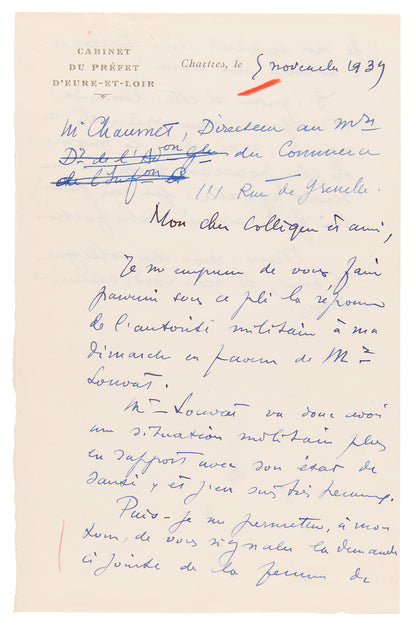 CABINET
DU PRÉFET
D'EURE-ET-LOIR
Chartres, le 5 novembre 1939
Mr Chaumet, Directeur au Mre
Dr de l'Aon Gle du Commerce
de l'Infon &
111 Rue de Grenelle.
Mon cher Collègue et ami,
Je m'empresse de vous faire
parvenir sous ce pli la réponse
de l'autorité militaire à ma
démarche en faveur de Mr
Louvat.
Mr Louvat va donc avoir
une situation militaire plus
en rapport avec son état de
santé, et j'en suis très heureux.
Puis-je me permettre, à mon
tour, de vous signaler la demande
ci jointe de la femme de